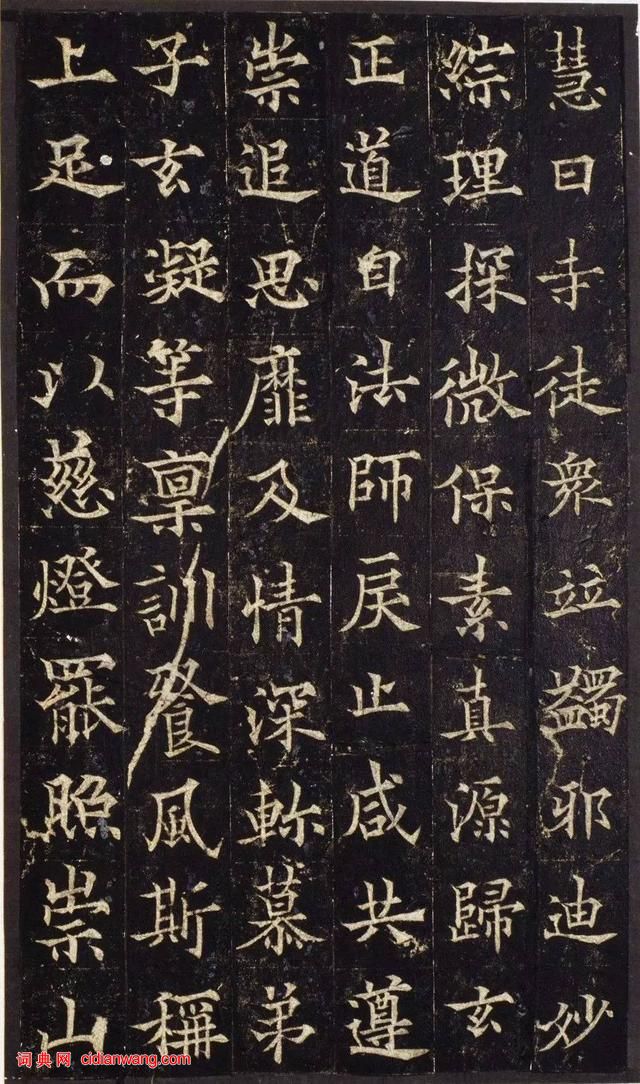 慧日寺徒衆竝蠲邪迪妙
綜理探微保素真源歸玄
正道自法師戾止咸共遵
崇追思靡及情深軫慕弟
子玄凝等稟訓餐風斯稱
上足而以慈燈罷照崇山
词典网 cidianwang.com